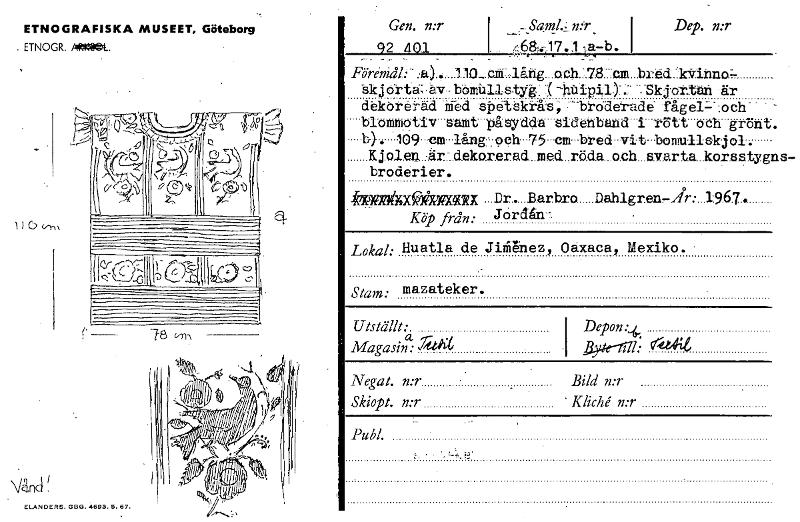 ETNOGRAFISKA MUSEET, Göteborg
ETNOGR.
110 cm
a
78 cm
Vänd!
ELANDERS. GBG. 4693. 5. 67.
Gen. n:r Saml. n:r Dep. n:r
92 401 68.17.1 a-b.
Föremål: a). 110 cm lång och 78 cm bred kvinno-
skjorta av bomullstyg ( huipil). Skjortan är
dekorerad med spetskrås, broderade fågel- och
blommotiv samt påsydda sidenband i rött och grönt.
b). 109 cm lång och 75 cm bred vit bomullskjol.
Kjolen är dekorerad med röda och svarta korsstygns-
broderier.
Dr. Barbro Dahlgren- År: 1967.
Köp från: Jordán
Lokal: Huatla de Jiménez, Oaxaca, Mexiko.
Stam: mazateker.
Utställt: Depon:
Magasin: a Textil Byte till: b Textil
Negat. n:r Bild n:r
Skiopt. n:r Kliché n:r
Publ.